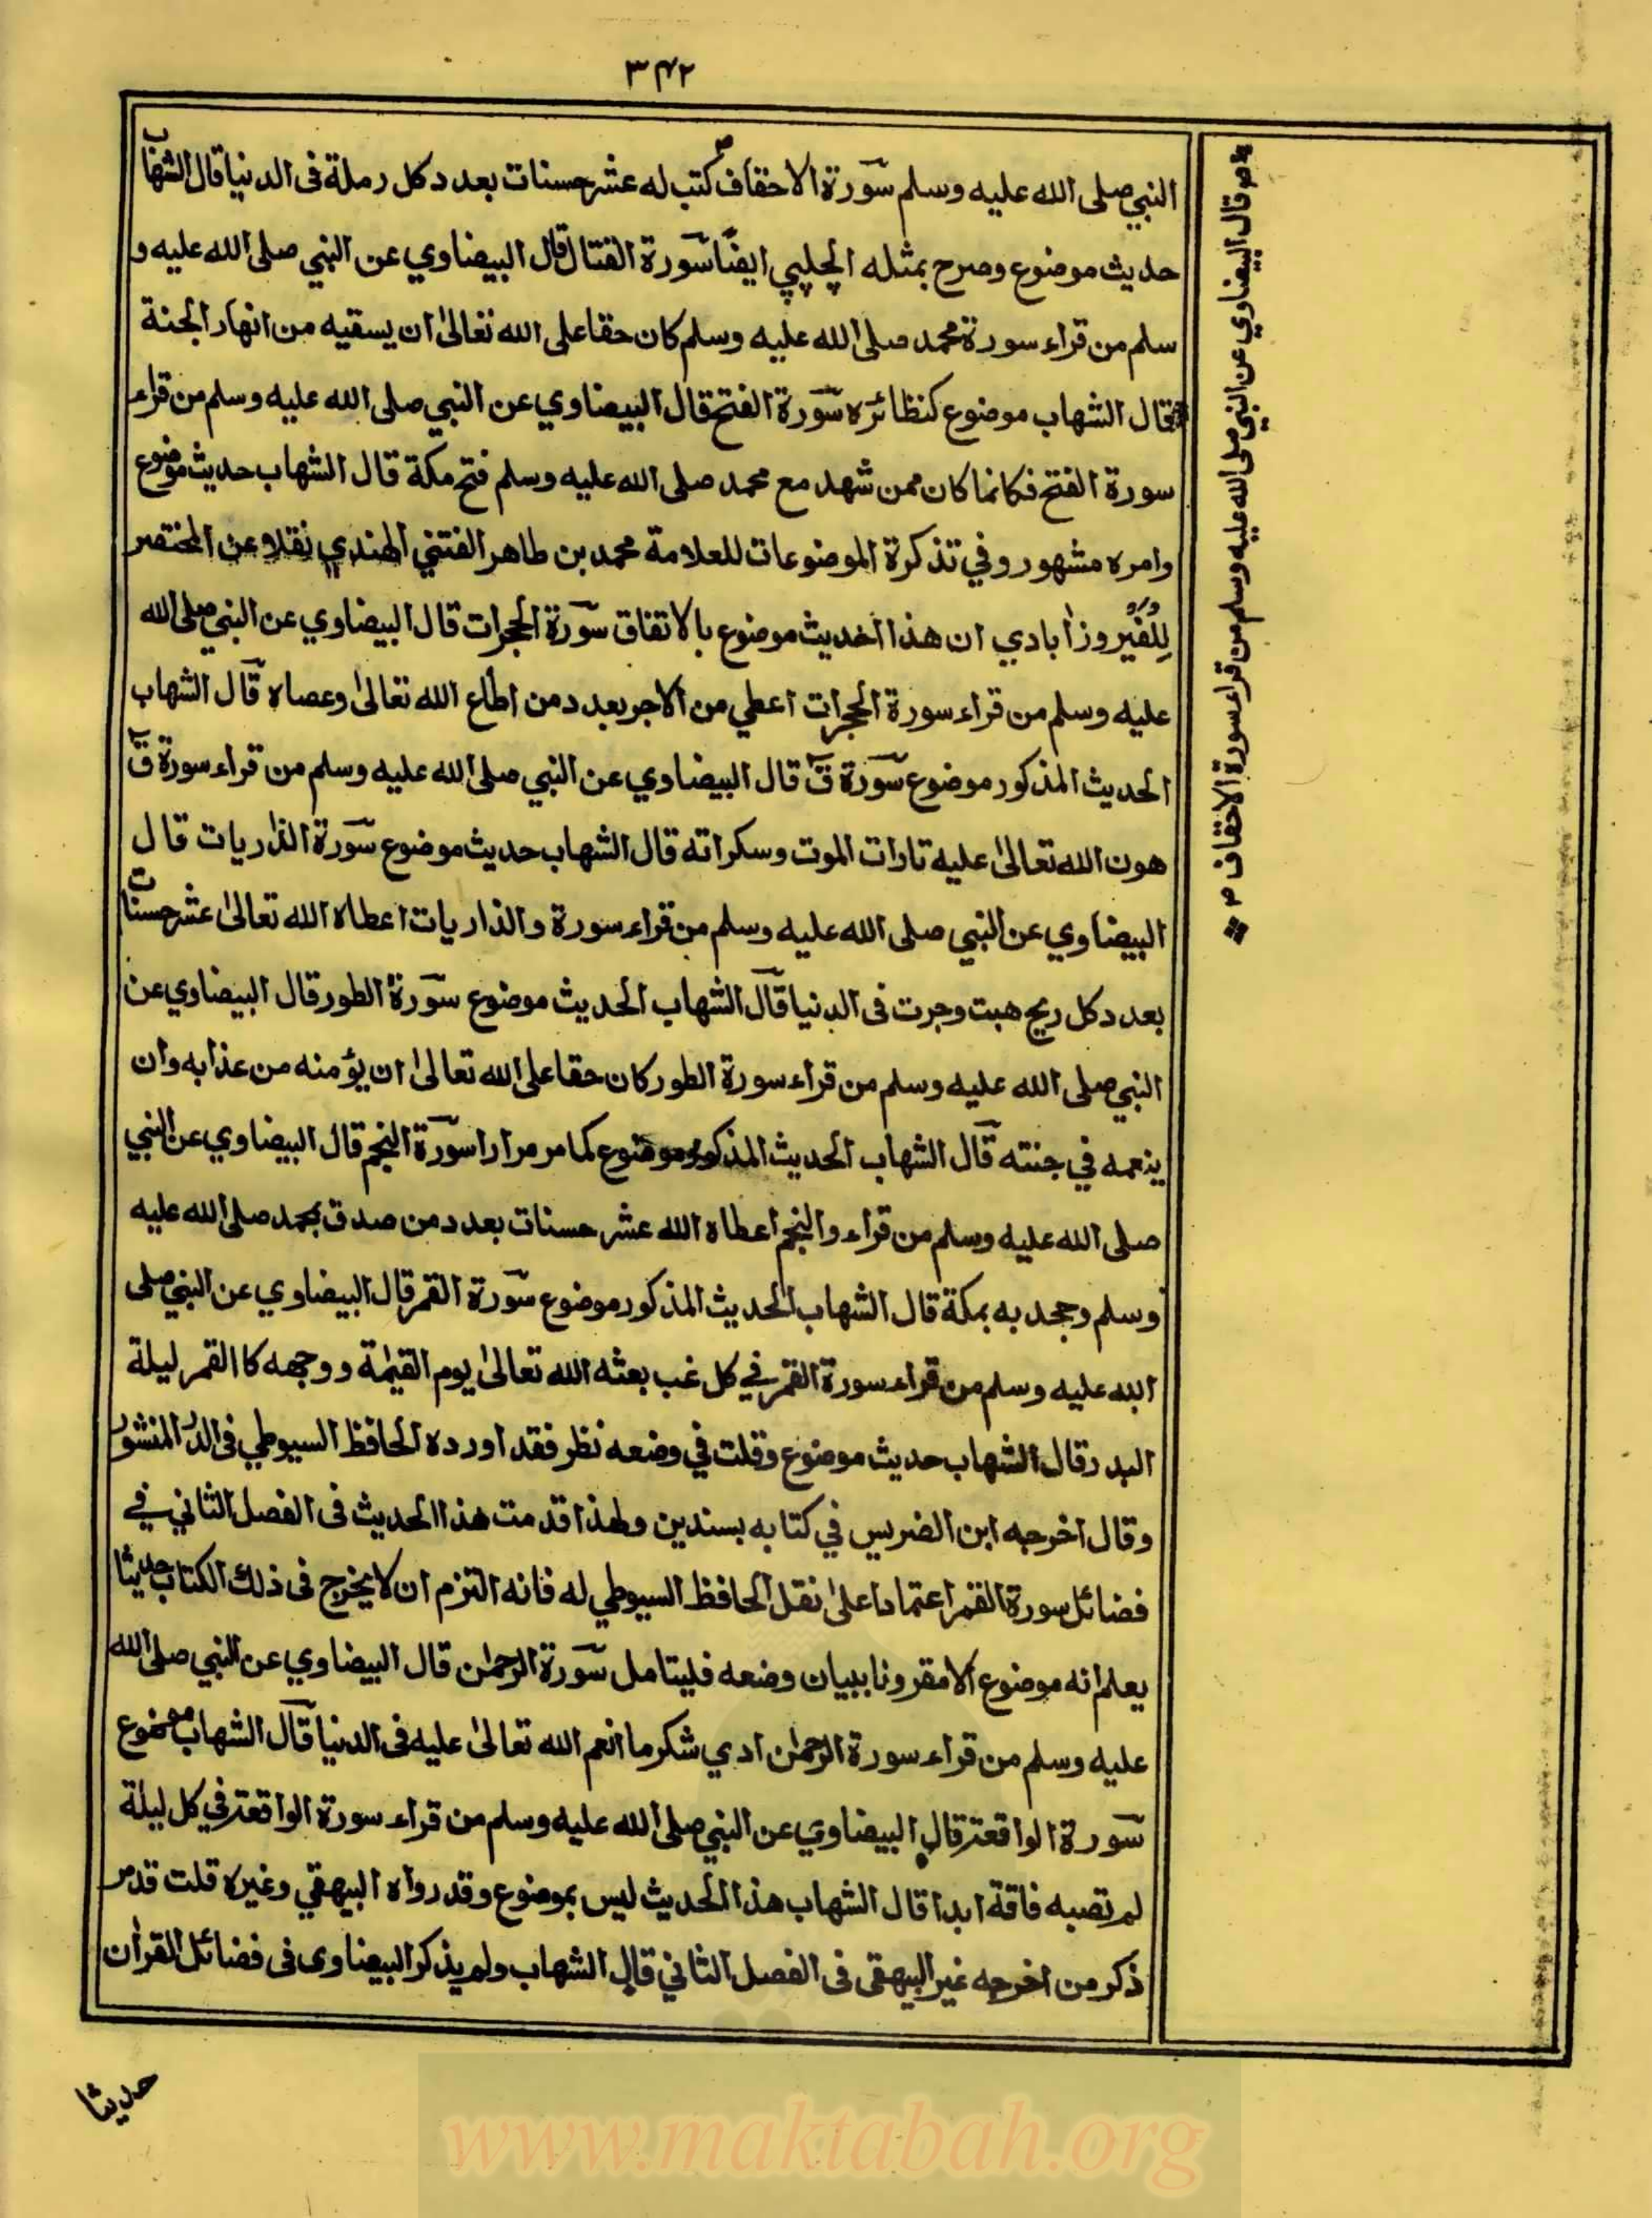 ٣٤٢
النبي صلى الله عليه وسلم سورة الاحقاف كتب له عشر حسنات بعدد كل رملة فى الدنيا قال الشهاب
حديث موضوع وصرح بمثله الچلپي ايضا سورة القتال قال البيضاوي عن النبي صلى الله عليه و
سلم من قراء سورة محمد صلى الله عليه وسلم كان حقا على الله تعالىٰ ان يسقيه من انهار الجنة
قال الشهاب موضوع كنظائره سورة الفتح قال البيضاوي عن النبي صلى الله عليه وسلم من قراء
سورة الفتح فكانما كان ممن شهد مع محمد صلى الله عليه وسلم فتح مكة قال الشهاب حديث موضوع
وامره مشهور وفي تذكرة الموضوعات للعلامة محمد بن طاهر الفتني الهندي نقلا عن المختصر
للفيروزاٰبادي ان هذا الحديث موضوع بالاتفاق سورة الحجرات قال البيضاوي عن النبي صلى الله
عليه وسلم من قراء سورة الحجرات اعطي من الاجر بعدد من اطاع الله تعالىٰ وعصاه قال الشهاب
الحديث المذكور موضوع سورة قٓ قال البيضاوي عن النبي صلى الله عليه وسلم من قراء سورة قٓ
هون الله تعالىٰ عليه تارات الموت وسكراته قال الشهاب حديث موضوع سورة الذاريات قال
البيضاوي عن النبي صلى الله عليه وسلم من قراء سورة والذاريات اعطاه الله تعالىٰ عشر حسنات
بعدد كل ريح هبت وجرت فى الدنيا قال الشهاب الحديث موضوع سورة الطور قال البيضاوي عن
النبي صلى الله عليه وسلم من قراء سورة الطور كان حقا على الله تعالىٰ ان يؤمنه من عذابه وان
ينعمه في جنته قال الشهاب الحديث المذكور موضوع كما مر مرارا سورة النجم قال البيضاوي عن النبي
صلى الله عليه وسلم من قراء والنجم اعطاه الله عشر حسنات بعدد من صدق بمحمد صلى الله عليه
وسلم وجحد به بمكة قال الشهاب الحديث المذكور موضوع سورة القمر قال البيضاوي عن النبي صلى
الله عليه وسلم من قراء سورة القمر في كل غب بعثه الله تعالىٰ يوم القيٰمة ووجهه كالقمر ليلة
البدر قال الشهاب حديث موضوع وقلت في وضعه نظر فقد اورده الحافظ السيوطي فى الدر المنثور
وقال اخرجه ابن الضريس في كتابه بسندين ولهذا قدمت هذا الحديث فى الفصل الثاني في
فضائل سورة القمر اعتمادا علىٰ نقل الحافظ السيوطي له فانه التزم ان لا يخرج فى ذلك الكتاب حديثا
يعلم انه موضوع الا مقرونا ببيان وضعه فليتامل سورة الرحمٰن قال البيضاوي عن النبي صلى الله
عليه وسلم من قراء سورة الرحمٰن ادي شكر ما انعم الله تعالىٰ عليه فى الدنيا قال الشهاب موضوع
سورة الواقعة قال البيضاوي عن النبي صلى الله عليه وسلم من قراء سورة الواقعة في كل ليلة
لم تصبه فاقة ابدا قال الشهاب هذا الحديث ليس بموضوع وقد رواه البيهقي وغيره قلت قد مر
ذكر من اخرجه غير البيهقى فى الفصل الثاني قال الشهاب ولم يذكر البيضاوى فى فضائل القراٰن
حديثا
قال البيضاوي عن النبي صلى الله عليه وسلم من قراء سورة الاحقاف
www.maktabah.org